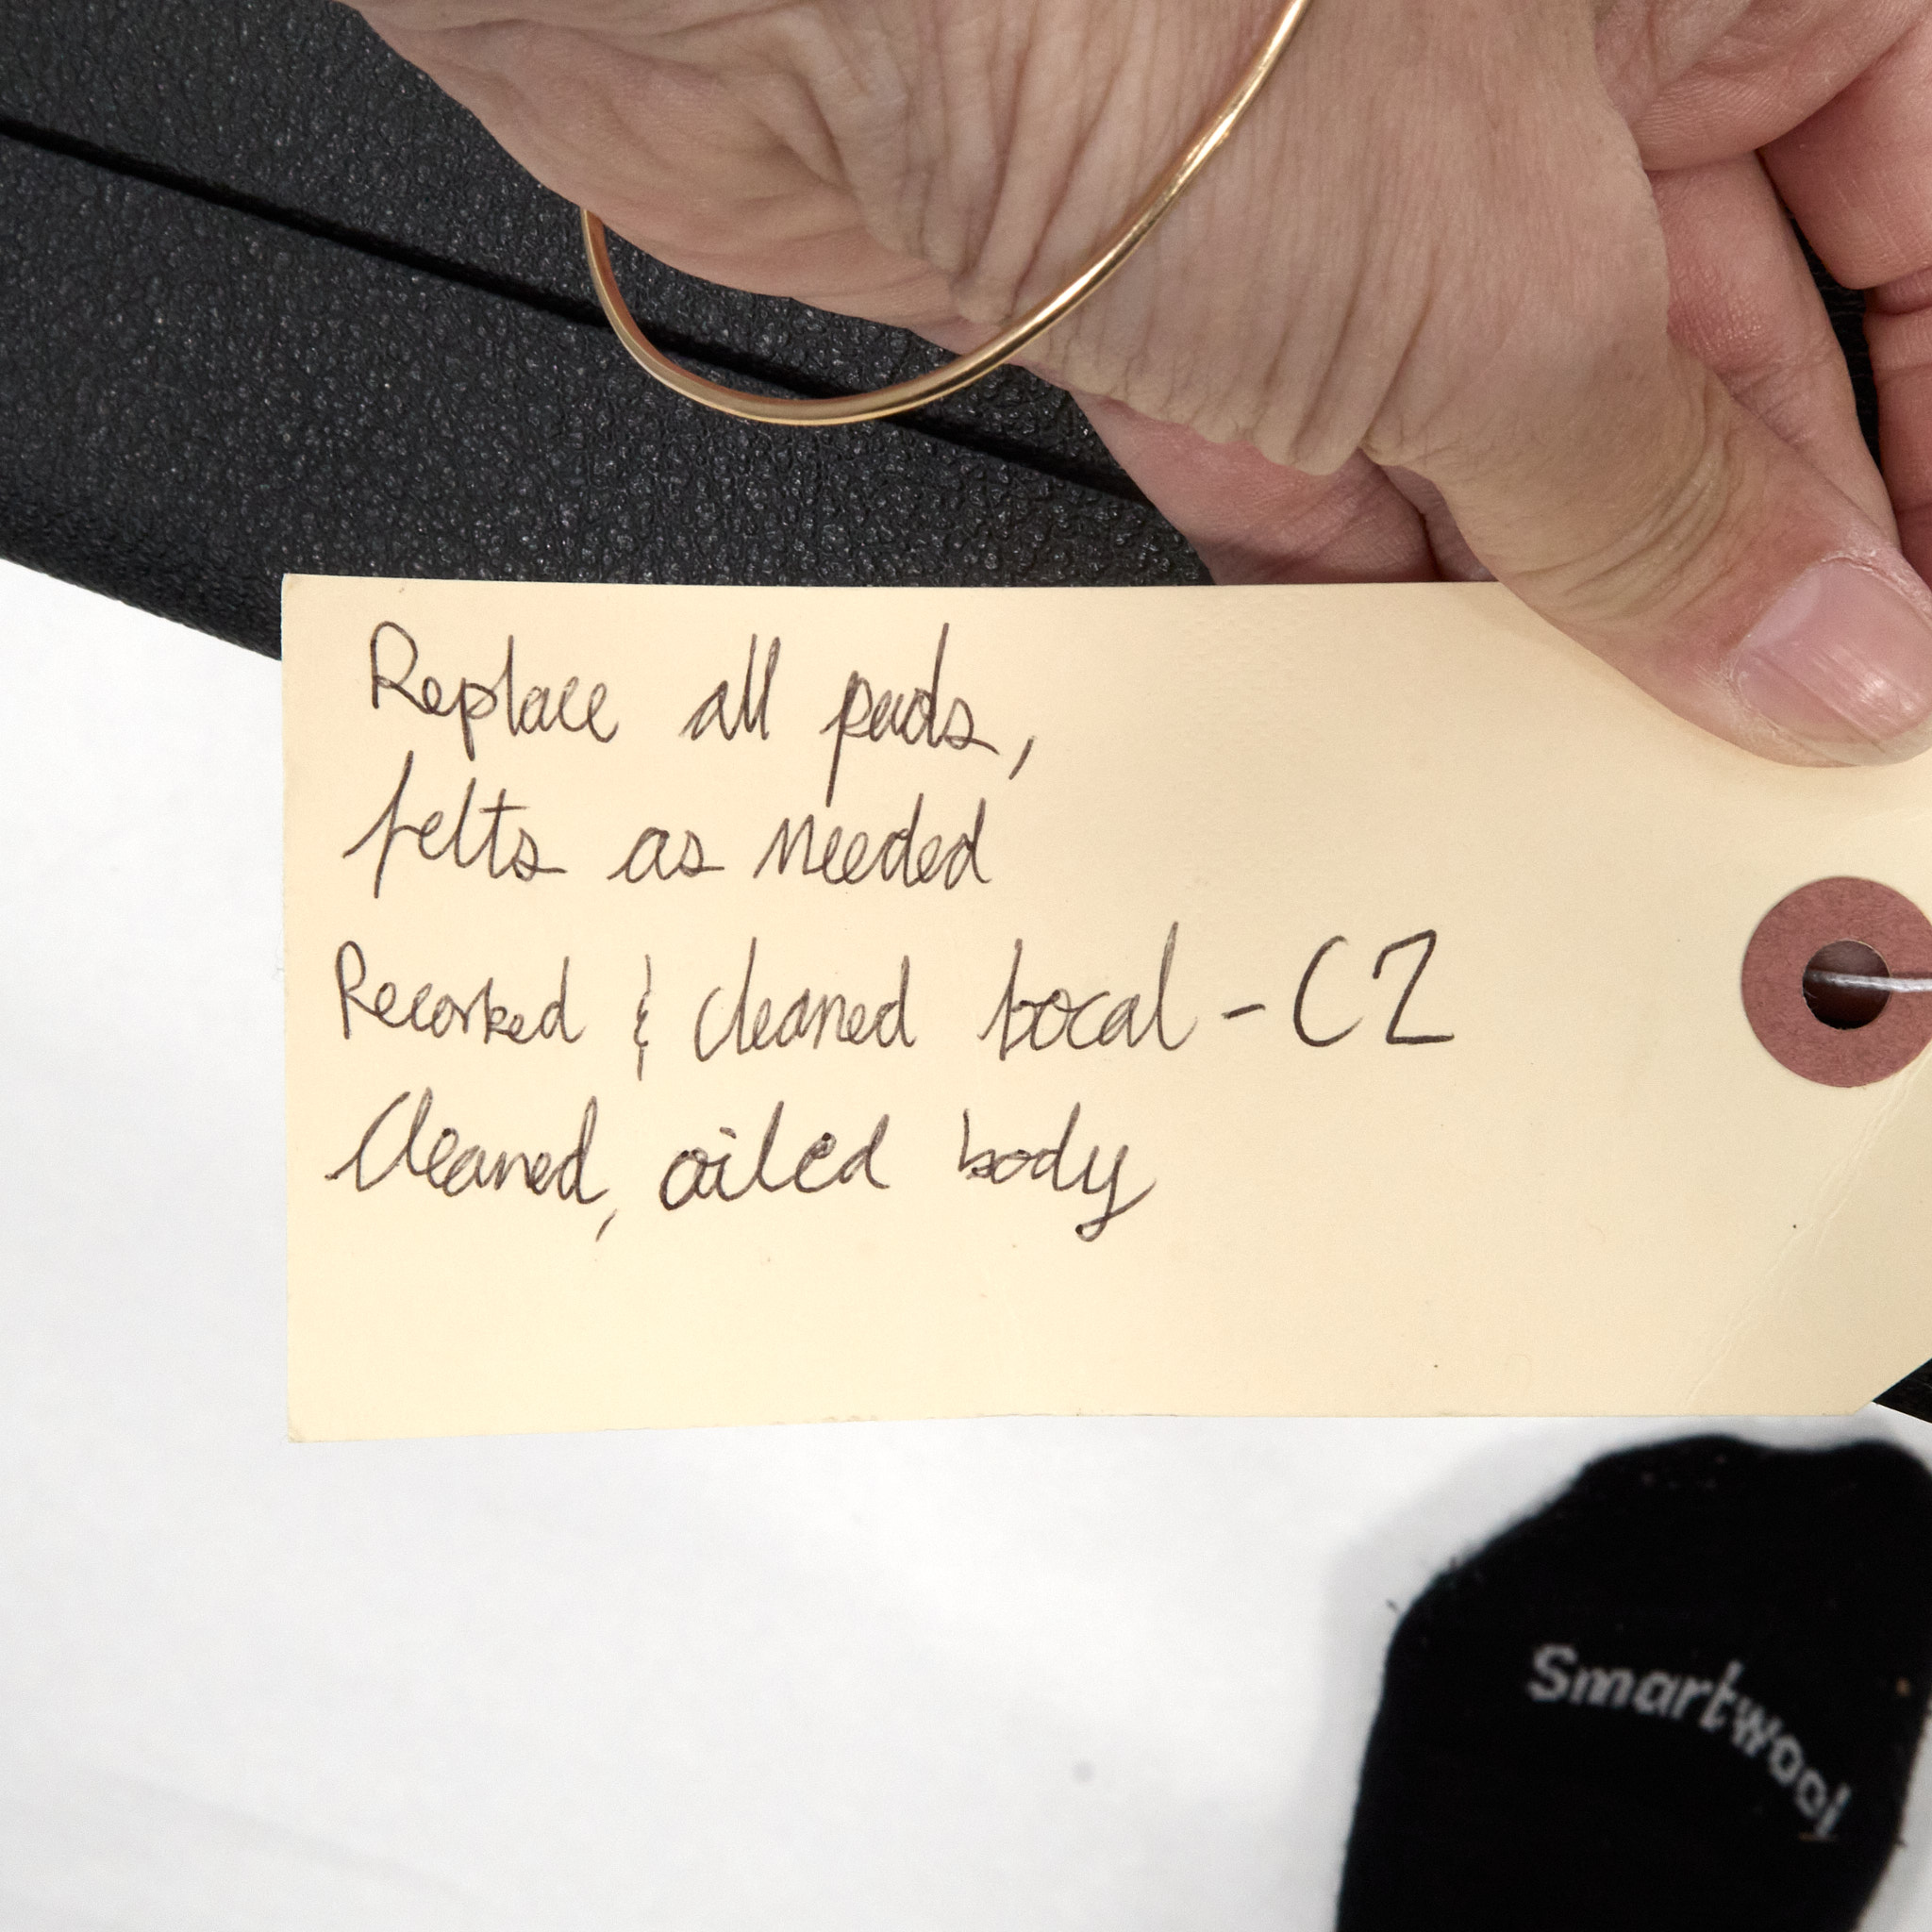 Replace all pads,
felts as needed
Recorked & cleaned bocal - C2
Cleaned, oiled body
Smartwool